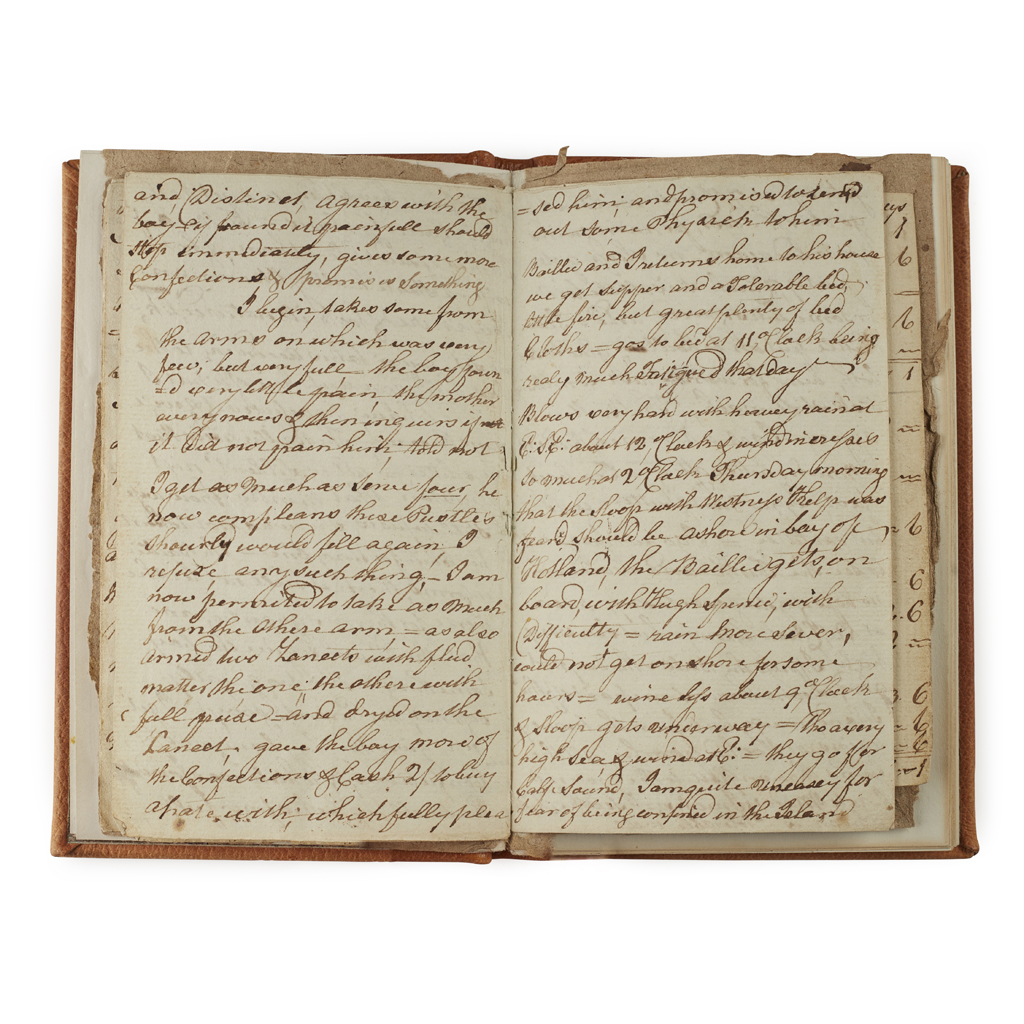 and Distinct, agrees with the
boy = if found it painfull should
stop immediately, gives some more
Confections & promises Something
I begin, takes some from
the arms on which was very
few, but very full the boy foun
=d very little pain, the mother
every now & then inquiris if
it did not pain him, told not
I get as Much as Serve four, he
now compleans these Pustle's
shourly would fill again, I
refuse any such thing, - I am
now permitted to take as Much
from the othere arm, = as also
armed two Lancets with fluid
matter the one; the othere with
full = and dryd on the
Lancet, gave the boy more of
the Confections & Cash 2/ to buy
a with, which fully plea
=sed him; and promised to send
out some Physick to him
Baillie and I returns home to his house
we got supper and a Tolerable bed,
little fire, but great plenty of bed
Cloths = goes to bed at 11 oClock being
realy much Fatigued that day
Blows very hard with heavey rain at
E:S:E: about 12 oClock & wind increses
so much at 2 oClock Thursday morning
that the Sloop with Westness Help was
feard should be ashore in bay of
Holland, the Baillie gets, on
board, with Hugh Spence, with
Difficulty = rain More Sever,
could not get on shore for some
hours = wine less about 9 oClock
& Sloop gets underway = tho a very
high Sea & wind at E: = they go for
Calf Sound, I am quite uneasey for
fear of being confined in the Island
ys
1
6
6
1
6
6
6
6
6
6
1